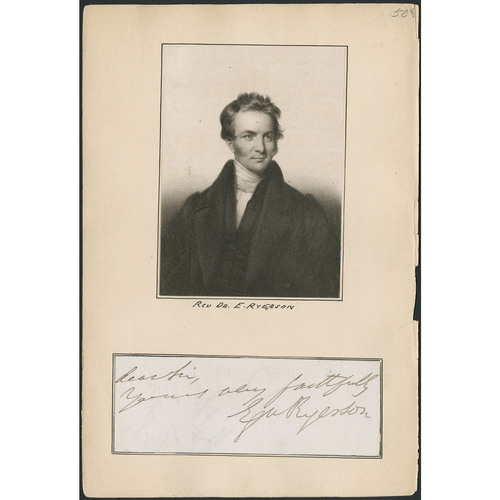 508
REV DR. E. RYERSON
dear Sir,
Yours very faithfully
Eg. Ryerson